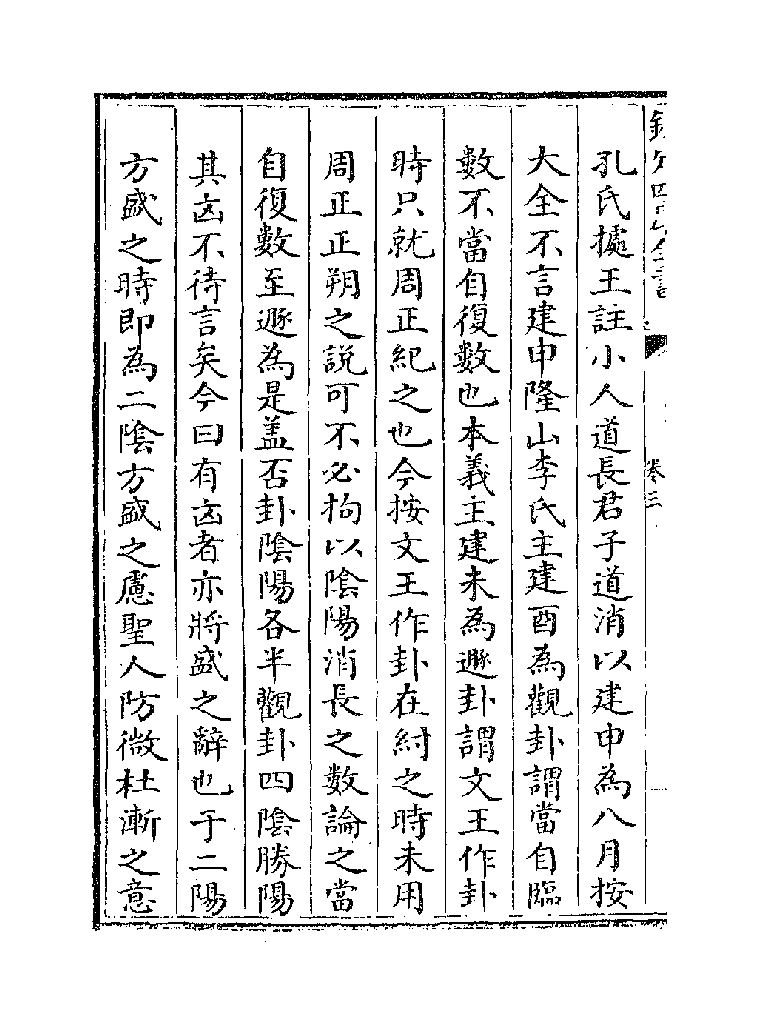 孔氏據王註小人道長君子道消以建申為八月按
大全不言建申隆山李氏主建酉為觀卦謂當自臨
數不當自復數也本義主建未為遯卦謂文王作卦
時只就周正紀之也今按文王作卦在紂之時未用
周正正朔之説可不必拘以陰陽消長之數論之當
自復數至遯為是盖否卦陰陽各半觀卦四陰勝陽
其凶不待言矣今曰有凶者亦將盛之辭也于二陽
方盛之時即為二陰方盛之慮聖人防微杜漸之意
卷三